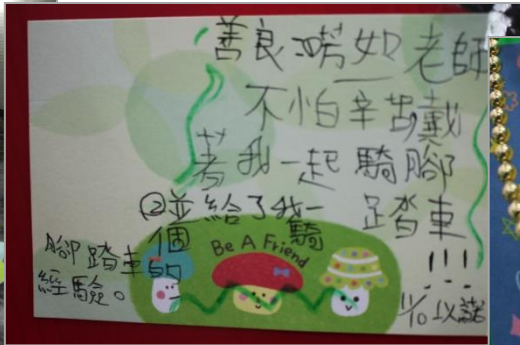 善良嘮如老師
不怕辛苦戴
著我一起騎腳
踏車!!!
②並給了我一
個騎
腳踏車的
經驗。
Be A Friend
以諾